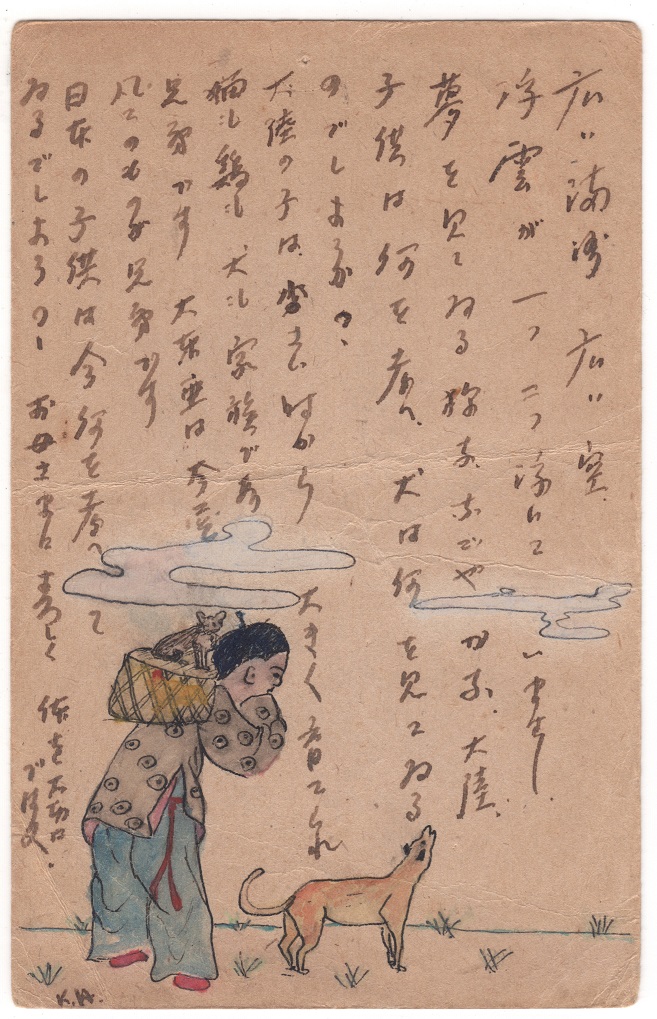 広い満洲 広い空
浮雲が一つ二つ流れて います
夢を見てゐる様な おだやかな 大陸
子供は何を考へ 犬は何を見てゐる
のでしょうか
大陸の子は 時から 大きく育てられ
猫も鶏も 犬も家族であ
兄弟です 大東亜は今
凡てのものが兄弟です
日本の子供は今何を考へて
ゐるでしょうね お母さまに 宜しく 体を大切に では又